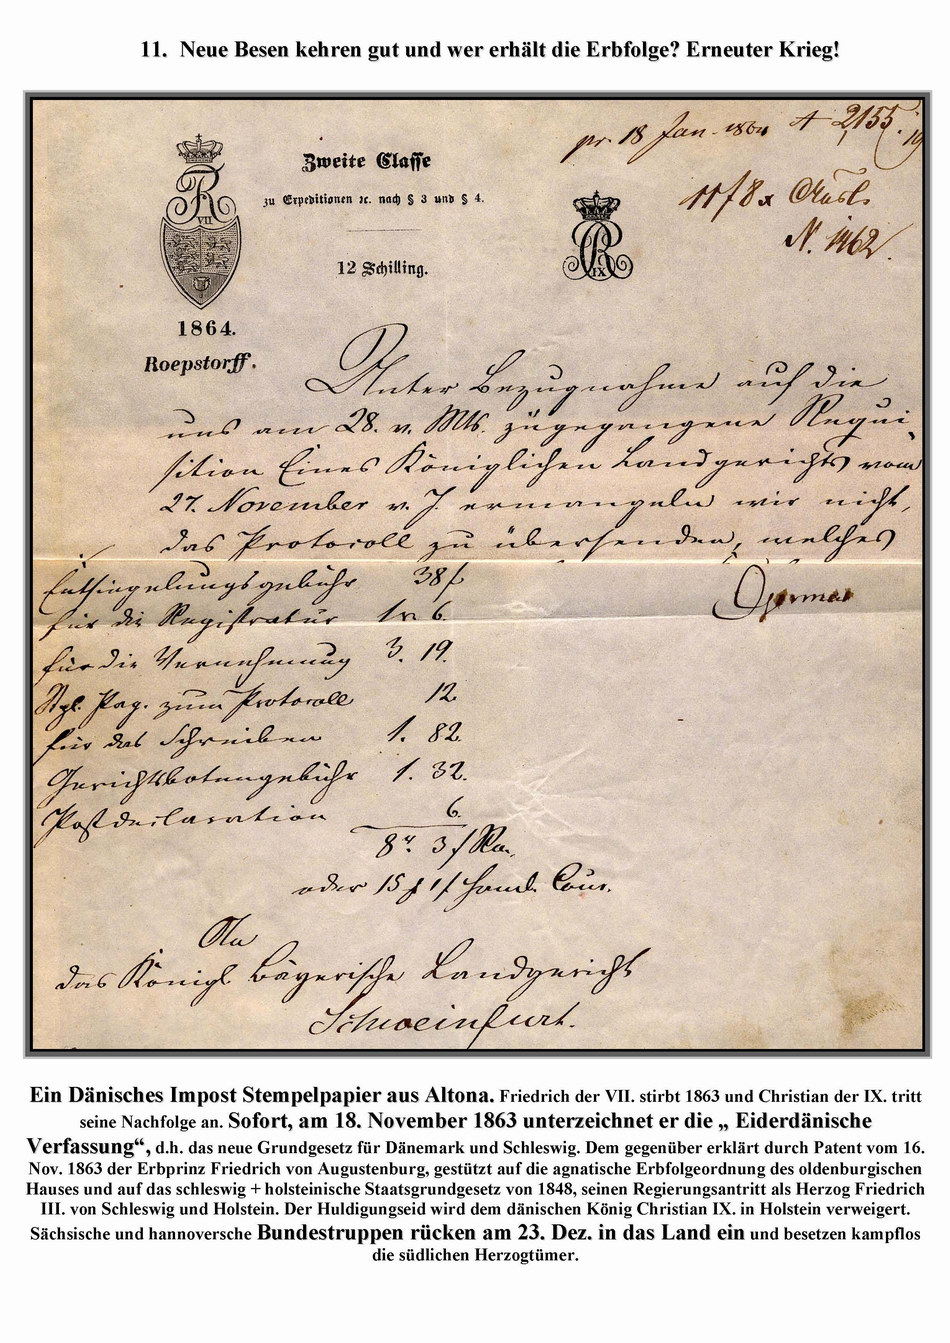 11. Neue Besen kehren gut und wer erhält die Erbfolge? Erneuter Krieg!
pr. 18 Jan. 1864 A 2155.
Zweite Classe
zu Expeditionen ꝛc. nach § 3 und § 4.
12 Schilling.
R
VII
IX
N. 1462.
1864.
Roepstorff.
Unter Bezugnahme auf die
uns am 28. v. Mts. zugegangene Requi-
sition Eines Königlichen Landgerichts vom
27. November v. J. ermangeln wir nicht,
das Protocoll zu übersenden, welches
Entsiegelungsgebühr 38
für die Registratur 1 6.
für die Vernehmung 3. 19.
Stpl. Pap. zum Protocoll 12
für das Schreiben 1. 82.
Gerichtsbotengebühr 1. 32.
Postdeclaration 6.
8 3
oder 15 1 Hamb. Cour.
An
das Königl Bayerische Landgericht
Schweinfurt.
Ein Dänisches Impost Stempelpapier aus Altona. Friedrich der VII. stirbt 1863 und Christian der IX. tritt
seine Nachfolge an. Sofort, am 18. November 1863 unterzeichnet er die „ Eiderdänische
Verfassung“, d.h. das neue Grundgesetz für Dänemark und Schleswig. Dem gegenüber erklärt durch Patent vom 16.
Nov. 1863 der Erbprinz Friedrich von Augustenburg, gestützt auf die agnatische Erbfolgeordnung des oldenburgischen
Hauses und auf das schleswig + holsteinische Staatsgrundgesetz von 1848, seinen Regierungsantritt als Herzog Friedrich
III. von Schleswig und Holstein. Der Huldigungseid wird dem dänischen König Christian IX. in Holstein verweigert.
Sächsische und hannoversche Bundestruppen rücken am 23. Dez. in das Land ein und besetzen kampflos
die südlichen Herzogtümer.